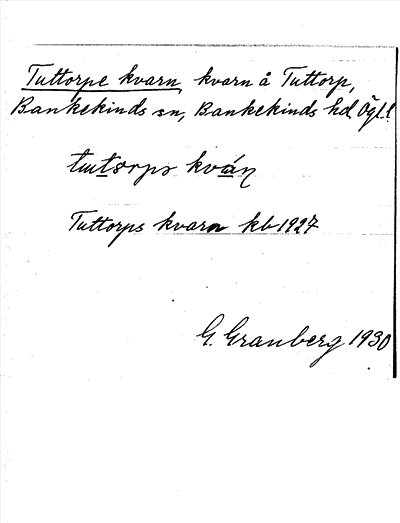 Tuttorps kvarn, kvarn å Tuttorp,
Bankekinds sn, Bankekinds hd. Ögl.
tutorps kván
Tuttorps kvarn kb 1927
G. Granberg 1930